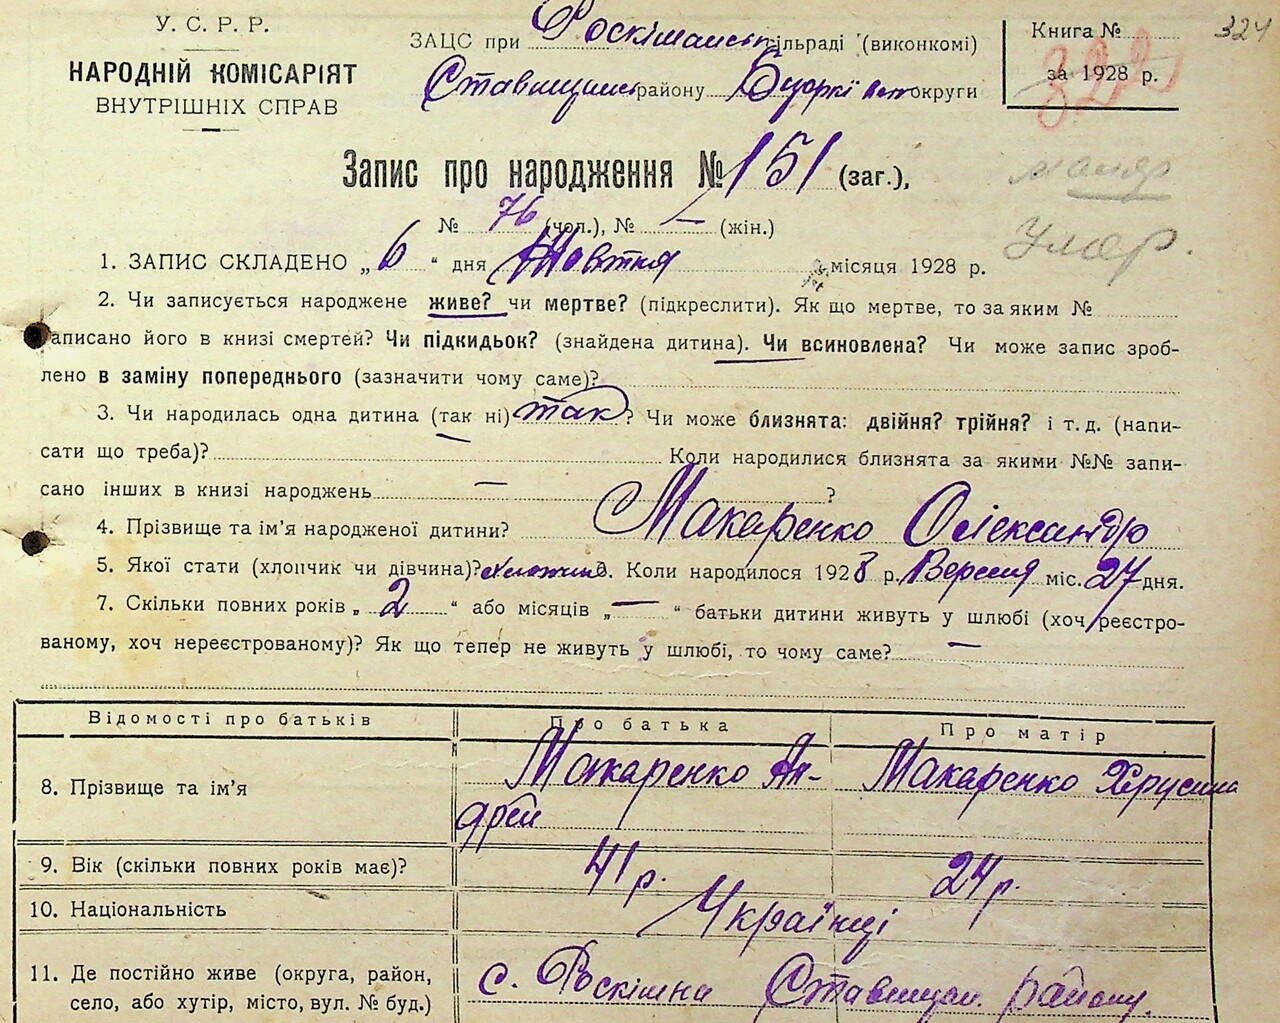 324
У. С. Р. Р.
НАРОДНІЙ КОМІСАРІЯТ
ВНУТРІШНІХ СПРАВ
ЗАЦС при Роскішанськ сільраді (виконкомі)
району округи
Книга №
за 1928 р.
322
Запис про народження № 151 (заг.),
№ 76 (чол.), № — (жін.)
1. ЗАПИС СКЛАДЕНО „ 6 “ дня Жовтня місяця 1928 р.
2. Чи записується народжене живе? чи мертве? (підкреслити). Як що мертве, то за яким №
записано його в книзі смертей? Чи підкидьок? (знайдена дитина). Чи всиновлена? Чи може запис зроб-
лено в заміну попереднього (зазначити чому саме)?
3. Чи народилась одна дитина (так ні) так ? Чи може близнята: двійня? трійня? і т. д. (напи-
сати що треба)? — Коли народилися близнята за якими №№ запи-
сано інших в книзі народжень — ?
4. Прізвище та ім'я народженої дитини? Макаренко Олександр
5. Якої стати (хлопчик чи дівчина)? 6. Коли народилося 1928 р. Вересня міс. 27 дня.
7. Скільки повних років „ 2 “ або місяців „ — “ батьки дитини живуть у шлюбі (хоч реєстро-
ваному, хоч нереєстрованому)? Як що тепер не живуть у шлюбі, то чому саме? —
Відомості про батьків Про батька Про матір
8. Прізвище та ім'я Макаренко Ан- Макаренко Хрусина
дрей
9. Вік (скільки повних років має)? 41 р. 24 р.
10. Національність Українці
11. Де постійно живе (округа, район, с. Роскішна Ставищан. району.
село, або хутір, місто, вул. № буд.)